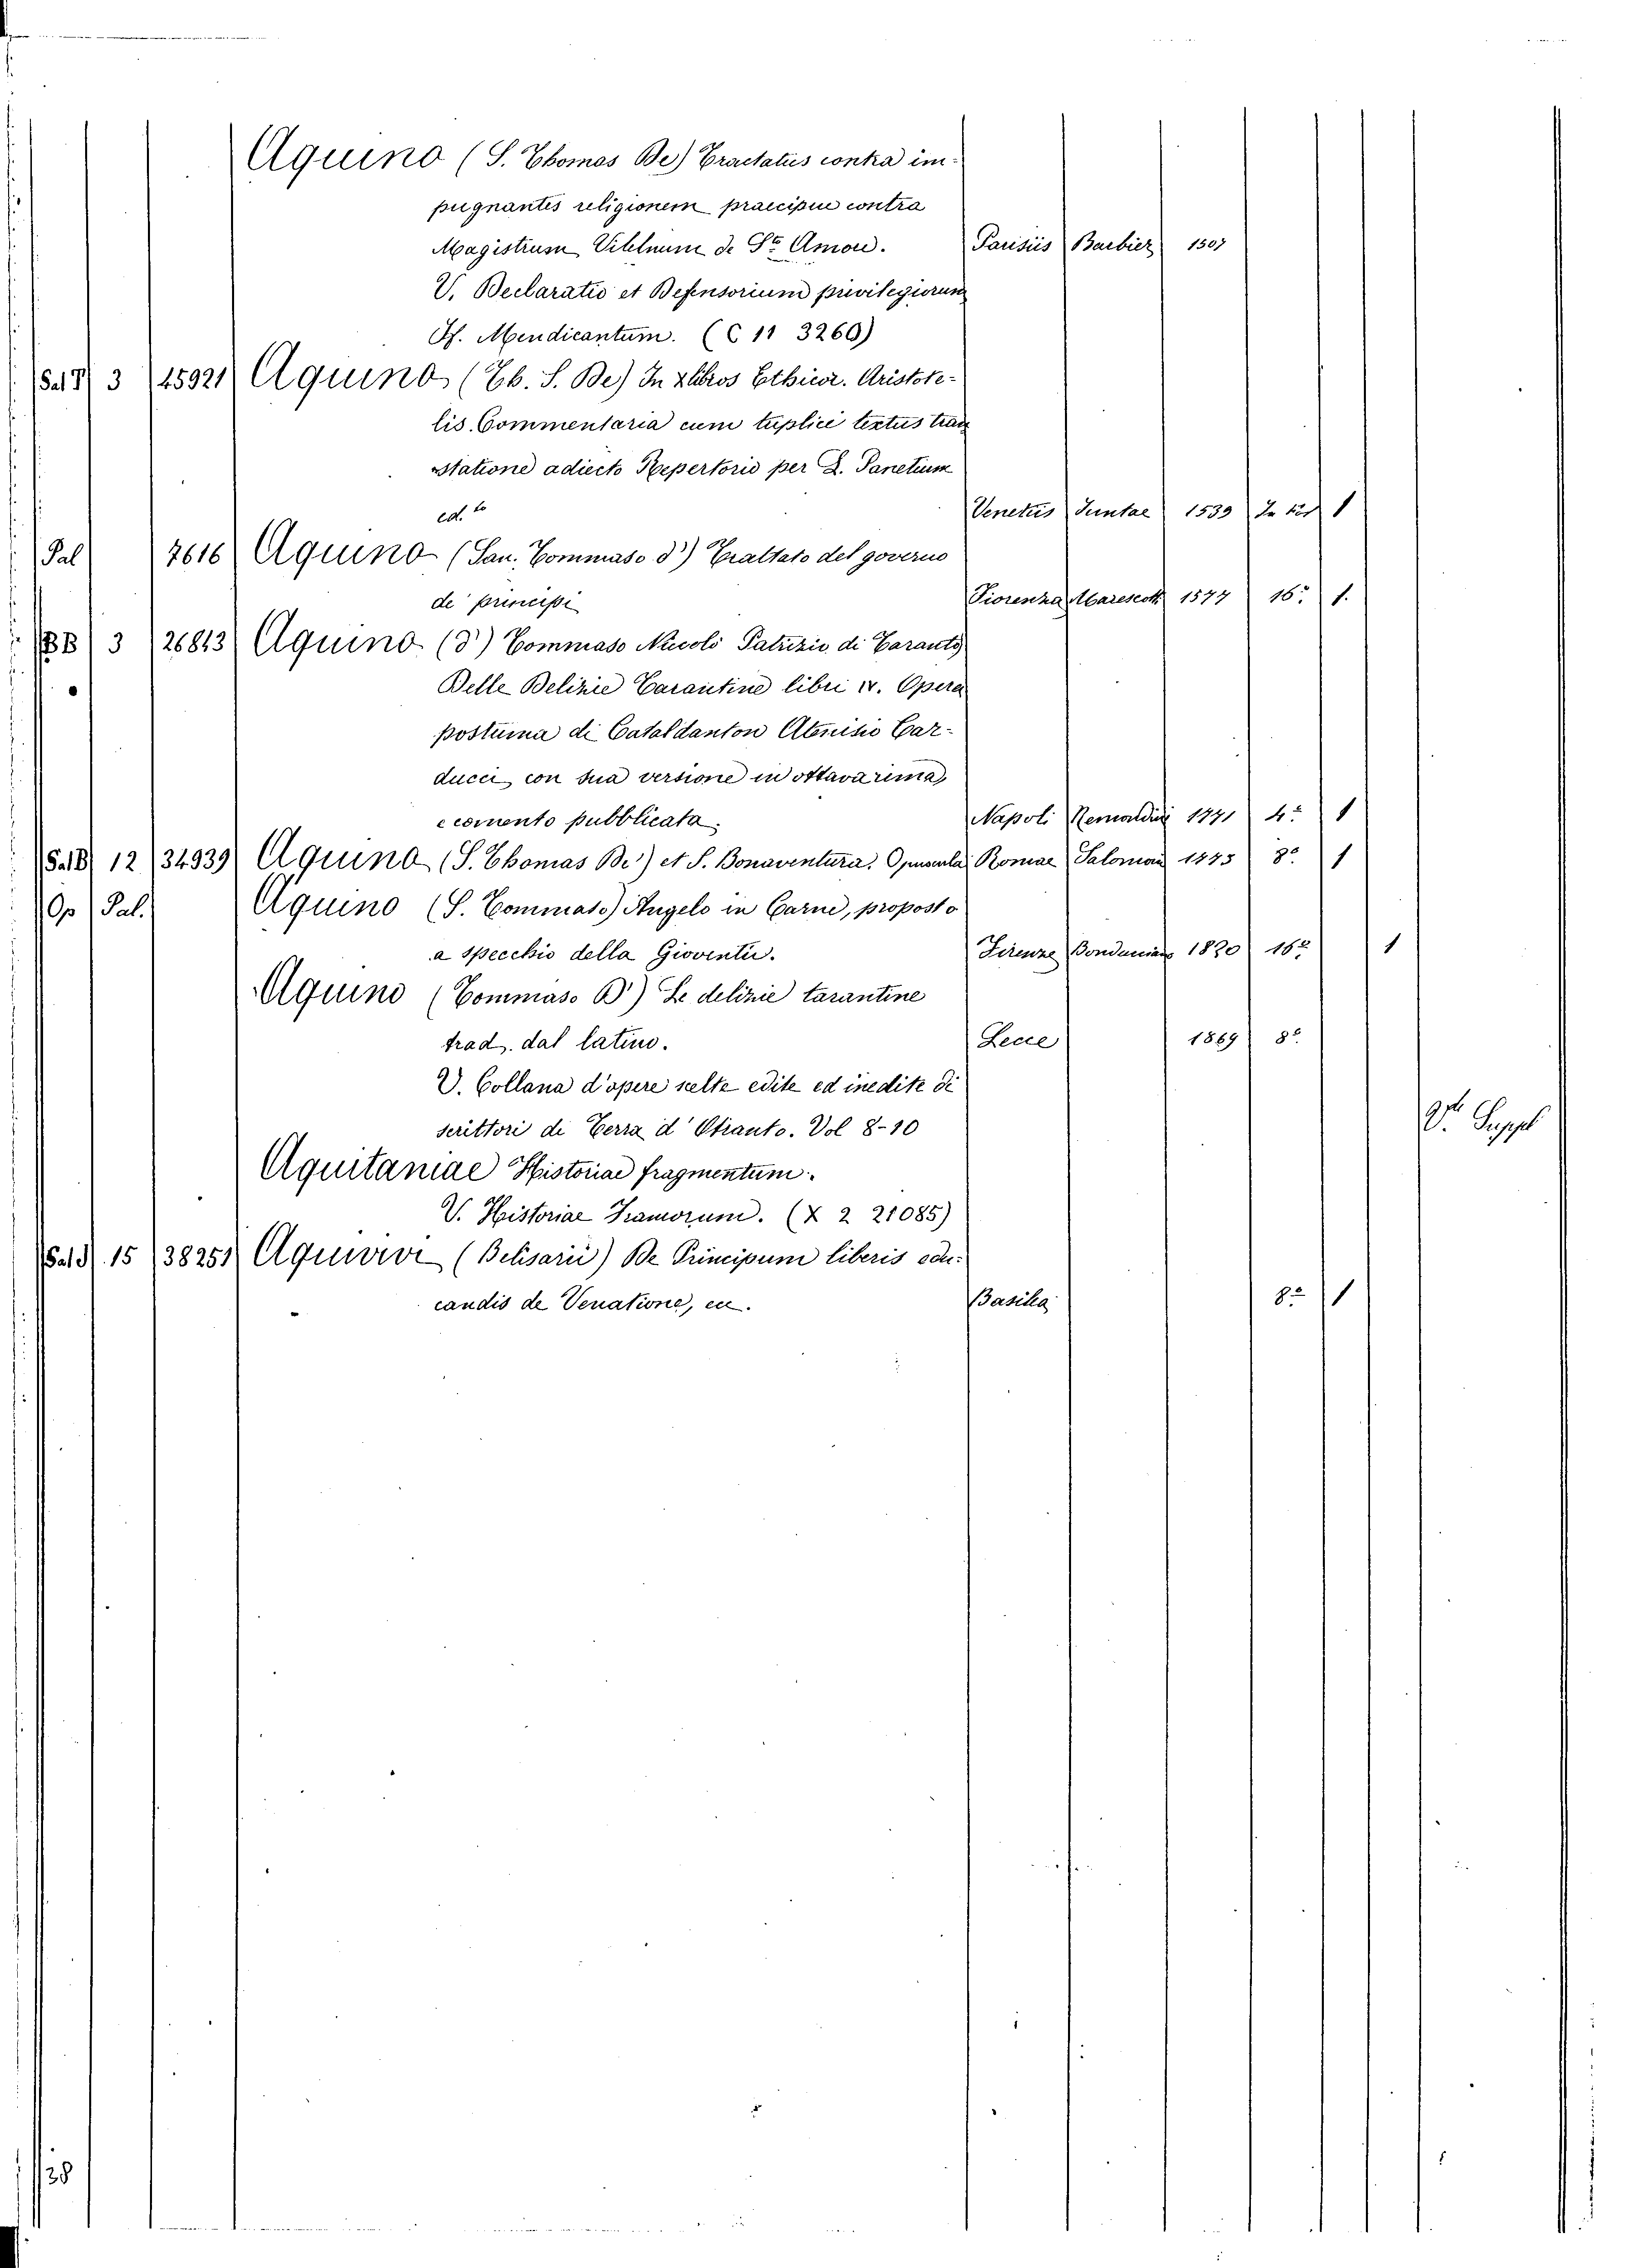 Aquino (S. Thomas De) Tractatus contra im-
pugnantes religionem praecipue contra
Magistrum Vilelnum de Sto Amore. Parisiis Barbier 1507
V. Declaratio et Defensorium privilegiorum
Ff. Mendicantum. (C 11 3260)
Sal 3 45921 Aquino (Th. S. De) In X libros Ethicor. Aristote-
lis Commentaria cum triplici textus tran
statione adiecto Repertorio per I. Panetium
ed. to Venetiis Juntae 1539 In fol 1
Pal 7616 Aquino (San. Tommaso d') Trattato del governo
de principi Fiorenza Marescott 1577 16o 1.
BB 3 26813 Aquino (d') Tommaso Niccolò Patrizio di Taranto
Delle Delizie Tarantine libri IV. Opera
postuma di Cataldanton Atenisio Car-
ducci con sua versione in ottava rima,
e comento pubblicata. Napoli Remondini 1771 4o 1
Sal B 12 34939 Aquino (S. Thomas De) et S. Bonaventura. Opuscula Romae Salomoni 1773 8o 1
Op Pal. Aquino (S. Tommaso) Angelo in Carne, proposto
a specchio della Gioventù. Firenze Bonducciana 1820 16o 1
Aquino (Tommaso D') Le delizie tarantine
trad. dal latino. Lecce 1869 8o
V. Collana d'opere scelte edite ed inedite di
scrittori di Terra d'Otranto. Vol 8-10
Vo Suppl
Aquitaniae Historiae fragmentum.
V. Historiae Francorum. (X 2 21085)
Sal 15 38251 Aquivivi (Belisarii) De Principum liberis edu-
candis de Venatione, ec. Basilea 8o 1
38